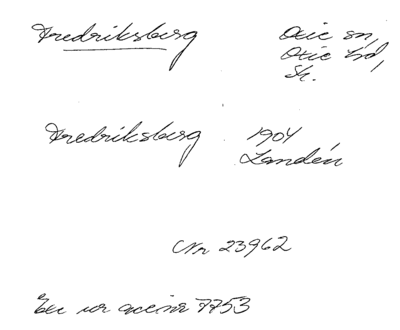 Fredriksberg
Oxie sn,
Oxie hd,
Sk.
Fredriksberg 1904
Landén
Nr 23962
Ex ur 7753